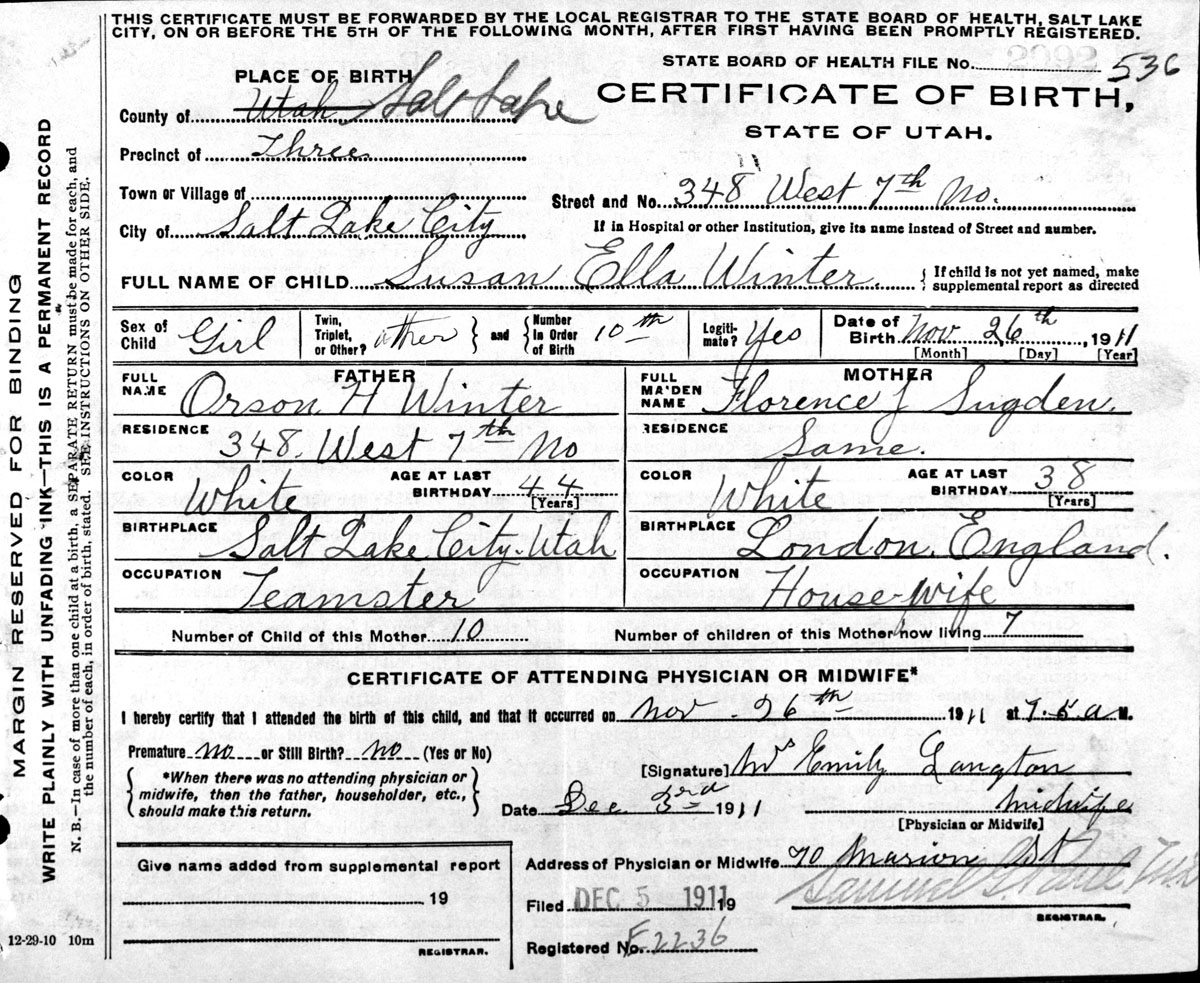 THIS CERTIFICATE MUST BE FORWARDED BY THE LOCAL REGISTRAR TO THE STATE BOARD OF HEALTH, SALT LAKE
CITY, ON OR BEFORE THE 5TH OF THE FOLLOWING MONTH, AFTER FIRST HAVING BEEN PROMPTLY REGISTERED.
STATE BOARD OF HEALTH FILE No. 536
PLACE OF BIRTH
CERTIFICATE OF BIRTH,
County of Utah Salt Lake
STATE OF UTAH.
Precinct of Three
Town or Village of
Street and No. 348 West 7th No.
City of Salt Lake City
If in Hospital or other Institution, give its name instead of Street and number.
FULL NAME OF CHILD Susan Ella Winter. { If child is not yet named, make
supplemental report as directed
Sex of
Child Girl
Twin,
Triplet,
or Other? other } and { Number
in Order
of Birth 10th
Legiti-
mate? Yes
Date of
Birth Nov 26th, 1911
[Month] [Day] [Year]
FATHER
FULL
NAME Orson H Winter
RESIDENCE
348. West 7th No
COLOR
White
AGE AT LAST
BIRTHDAY 44
[Years]
BIRTHPLACE
Salt Lake City. Utah
OCCUPATION
Teamster
MOTHER
FULL
MAIDEN
NAME Florence J Sugden.
RESIDENCE
Same.
COLOR
White
AGE AT LAST
BIRTHDAY 38
[Years]
BIRTHPLACE
London. England.
OCCUPATION
House-wife
Number of Child of this Mother 10
Number of children of this Mother now living 7
CERTIFICATE OF ATTENDING PHYSICIAN OR MIDWIFE*
I hereby certify that I attended the birth of this child, and that it occurred on Nov - 26th 1911 at 7.5 a M.
Premature no or Still Birth? no (Yes or No)
{ *When there was no attending physician or
midwife, then the father, householder, etc.,
should make this return. }
[Signature] Mrs Emily Langton
Date Dec 3rd 1911
midwife
[Physician or Midwife]
Give name added from supplemental report
19
REGISTRAR.
Address of Physician or Midwife 70 Marion St
Filed DEC 5 1911 19
Samuel G. Paul
REGISTRAR.
Registered No. F2236
12-29-10 10m
MARGIN RESERVED FOR BINDING
WRITE PLAINLY WITH UNFADING INK—THIS IS A PERMANENT RECORD
N. B.—In case of more than one child at a birth, a SEPARATE RETURN must be made for each, and
the number of each, in order of birth, stated. SEE INSTRUCTIONS ON OTHER SIDE.